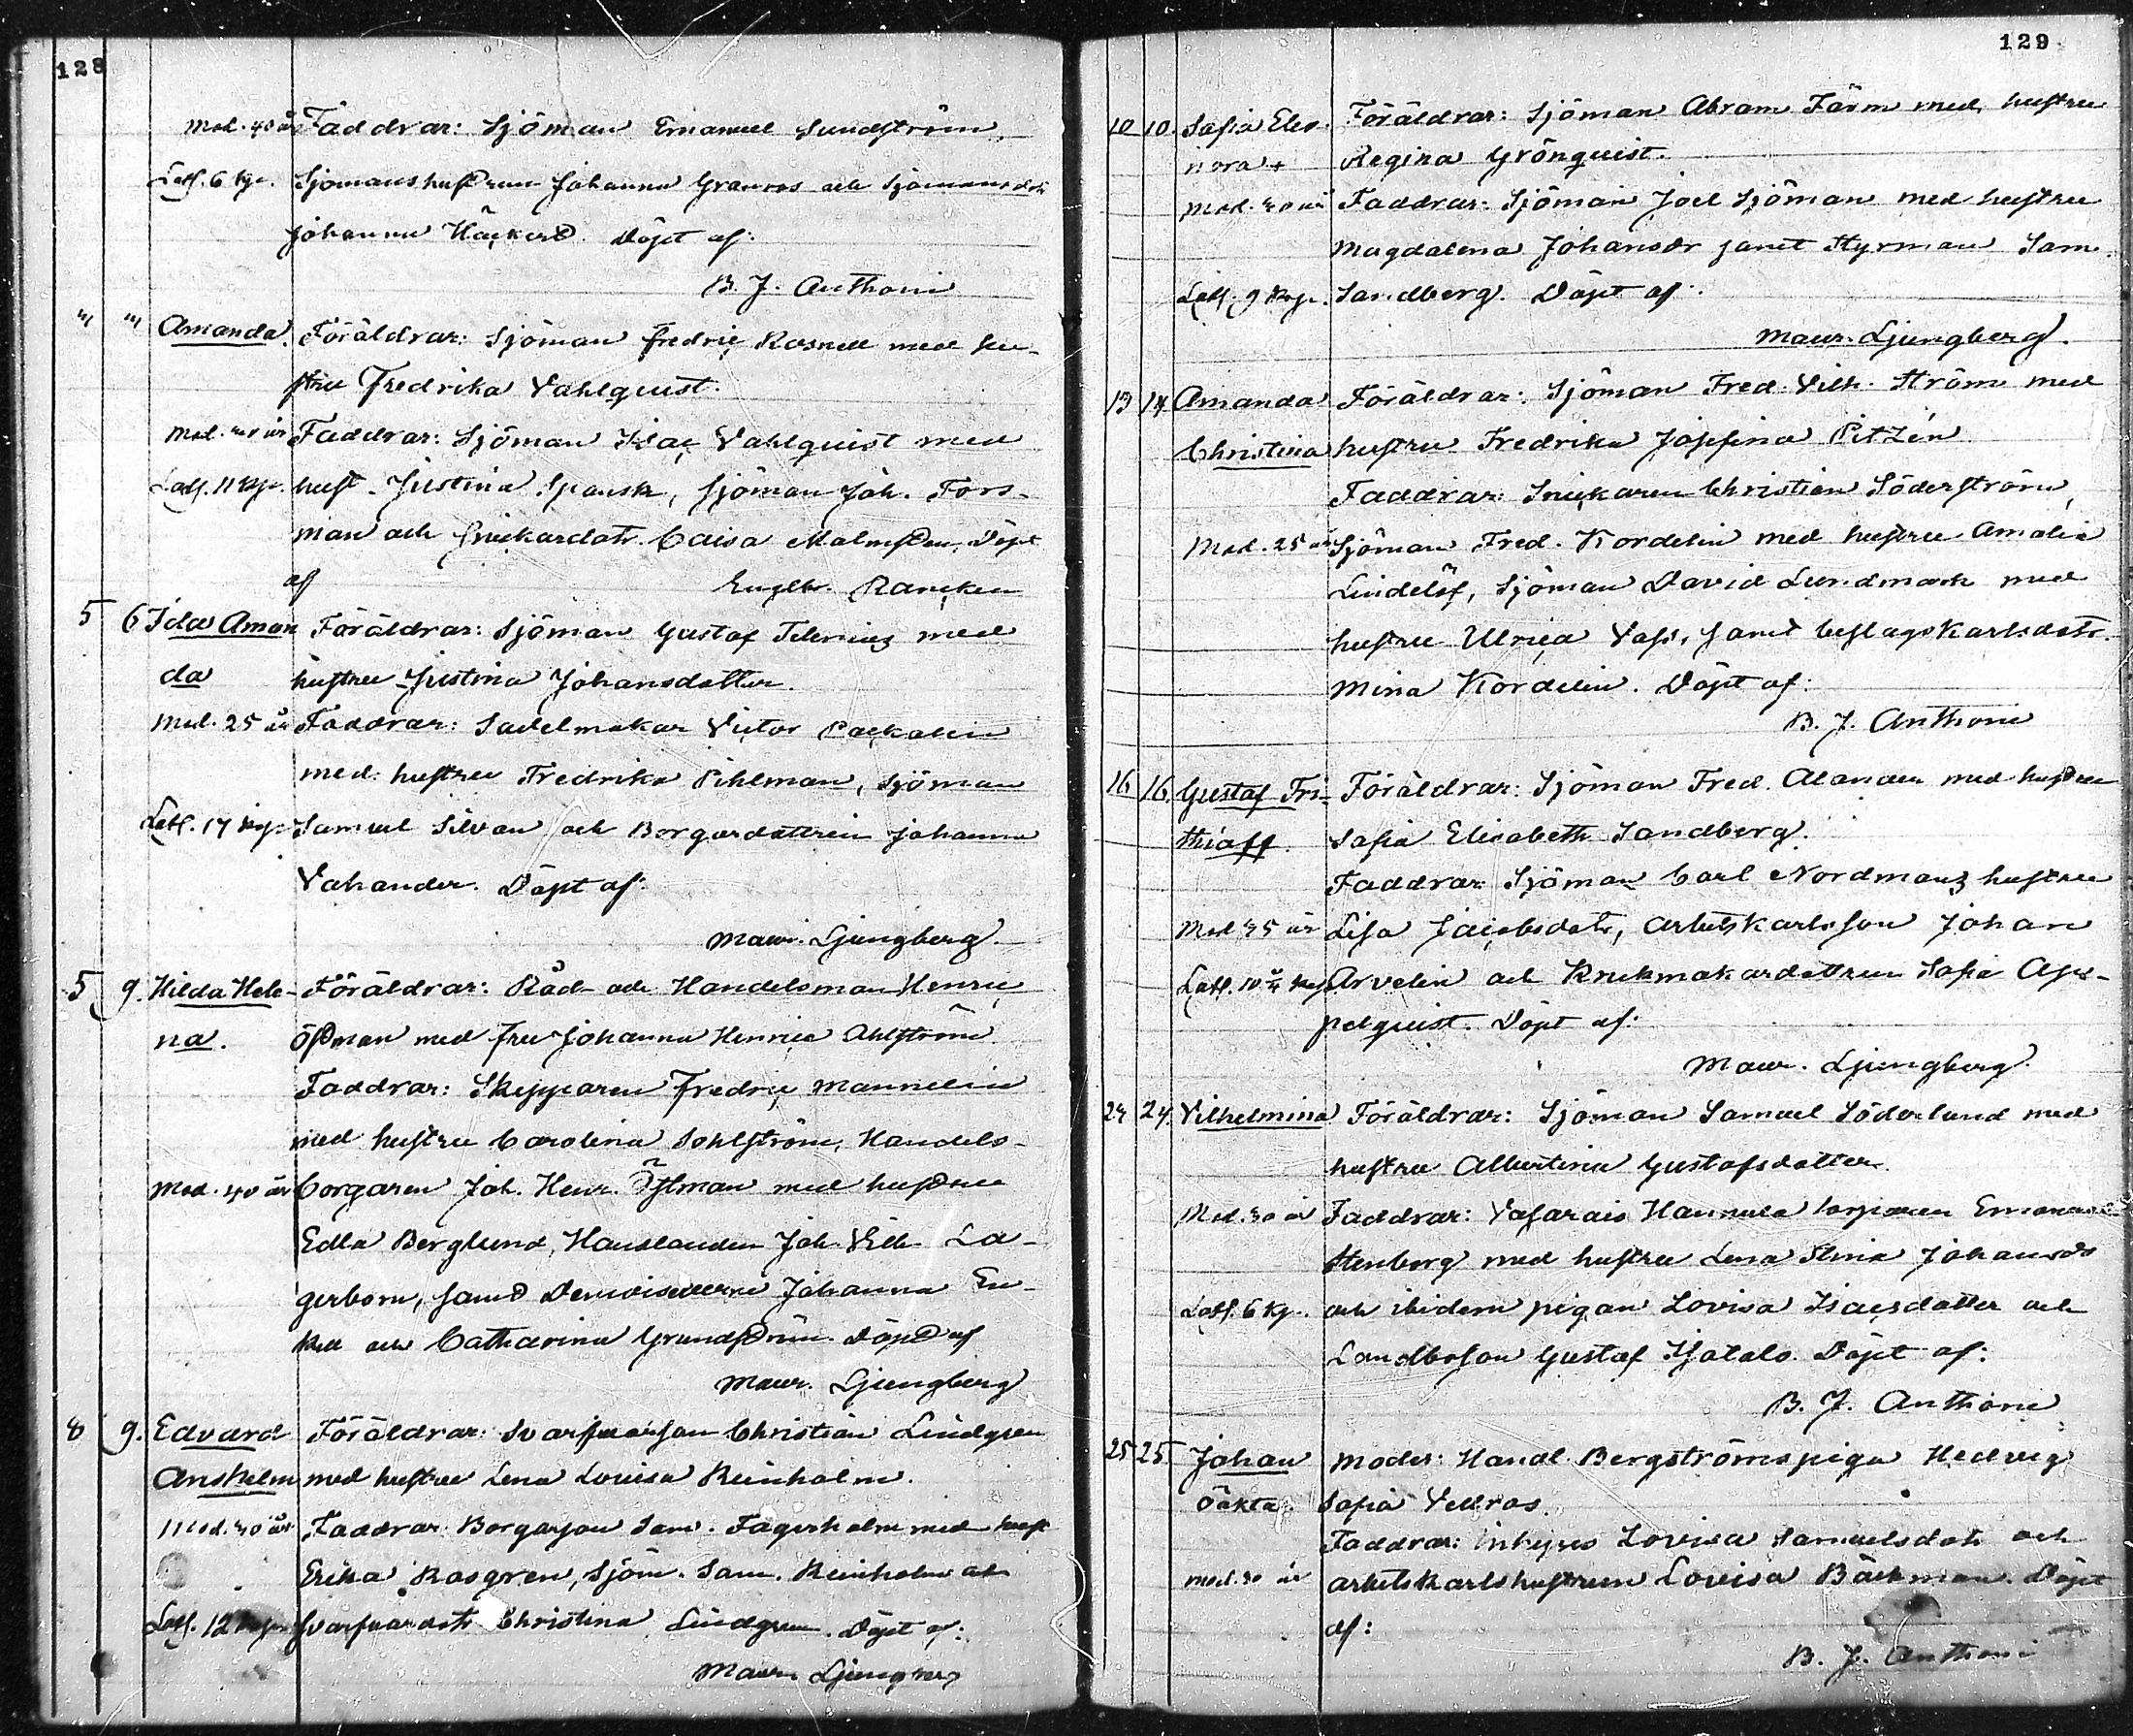 128
Mod. 40 år Faddrar: Sjöman Emanuel Sundström,
Lötf. 6 kp. Sjömanshustrun Johanna Granros och Sjömansdotr
Johanna Häckert. Döpt af:
B. J. Anthoni
" " Amanda. Föräldrar: Sjöman Fredric Rosnell med hu-
stru Fredrika Vahlquist.
Mod. år Faddrar: Sjöman Isac Vahlquist med
Lötf. 11 kp. hust. Justina Spansk, Sjöman Joh. Fors-
man och Snickardotr. Caisa Malmsten, Döpt
af Englbr. Rancken
5 6 Ida Aman Föräldrar: Sjöman Gustaf Telenius med
da hustru Justina Johansdotter.
Mod. 25 år Faddrar: Sadelmakar Victor Packalin
med hustru Fredrika Pihlman, Sjöman
Lötf. 17 kop Samuel Silvan och Borgardottren Johanna
Vahander. Döpt af:
Maur. Ljungberg.
5 9. Hilda Hele- Föräldrar: Råd- och Handelsman Henric
na. Östman med fru Johanna Henrica Ahlström
Faddrar: Skepparen Fredric Mannelin
med hustru Carolina Sohlström, Handels-
Mod. 40 år borgaren Joh. Henr. Östman med hustru
Edla Berglund, Handlanden Joh. Vilh. La-
gerborn, samt Demoisellerne Johanna En-
kell och Catharina Grundström. Döpt af
Maur. Ljungberg
8 9. Edvard Föräldrar: Svarfvarson Christian Lindgren
Anshelm med hustru Lena Lovisa Reinholm.
Mod. 30 år Faddrar: Borgarson Sam. Fagerholm med hust
Erika Rosgren, Sjöm. Sam. Reinholm och
Lötf. 12 kop Svarfvardotr Christina Lindgren. Döpt af:
Maur. Ljungberg
129
10 10. Sofia Eleo- Föräldrar: Sjöman Abram Färm med hustru
nora + Regina Grönquist.
Mod. 30 år Faddrar: Sjöman Joel Sjöman med hustru
Magdalena Johansdr samt Styrman Sam.
Lötf. 9 kop. Sandberg. Döpt af:
Maur. Ljungberg.
13 14. Amanda Föräldrar: Sjöman Fred. Vilh. Ström med
Christina hustru Fredrika Josefina Pitzén
Faddrar: Snickaren Christian Söderström,
Mod. 25 år Sjöman Fred. Kordelin med hustru Amalia
Lindelöf, Sjöman David Lundmark med
hustru Ulrica Vass, samt beslagskarlsdotr.
Mina Kordelin. Döpt af:
B. J. Anthoni
16 16. Gustaf Fri- Föräldrar: Sjöman Fred. Alander med hustru
thiaff. Sofia Elisabeth Sandberg.
Faddrar: Sjöman Carl Nordmans hustru
Mod 35 år Lisa Jacobsdotr, Arbetskarlsson Johan
Lötf. 10 kop Arvelin och Krukmakardottren Sofia App-
pelquist. Döpt af:
Maur. Ljungberg.
24 24. Vilhelmina Föräldrar: Sjöman Samuel Söderlund med
hustru Albertina Gustafsdotter.
Mod. 30 år Faddrar: Hannula torparen Emanuel
Stenborg med hustru Lena Stina Johansdr
Lötf. 6 kp. och ibidem pigan Lovisa Isacsdotter och
Landboson Gustaf Isotalo. Döpt af:
B. J. Anthoni
25 25 Johan Moder: Handl. Bergströms piga Hedvig
oäkta. Sofia Vellros.
Faddrar: Inhyses Lovisa Samuelsdotr och
Mod. 30 år arbetskarlshustrun Lovisa Bäckman. Döpt
af:
B. J. Anthoni